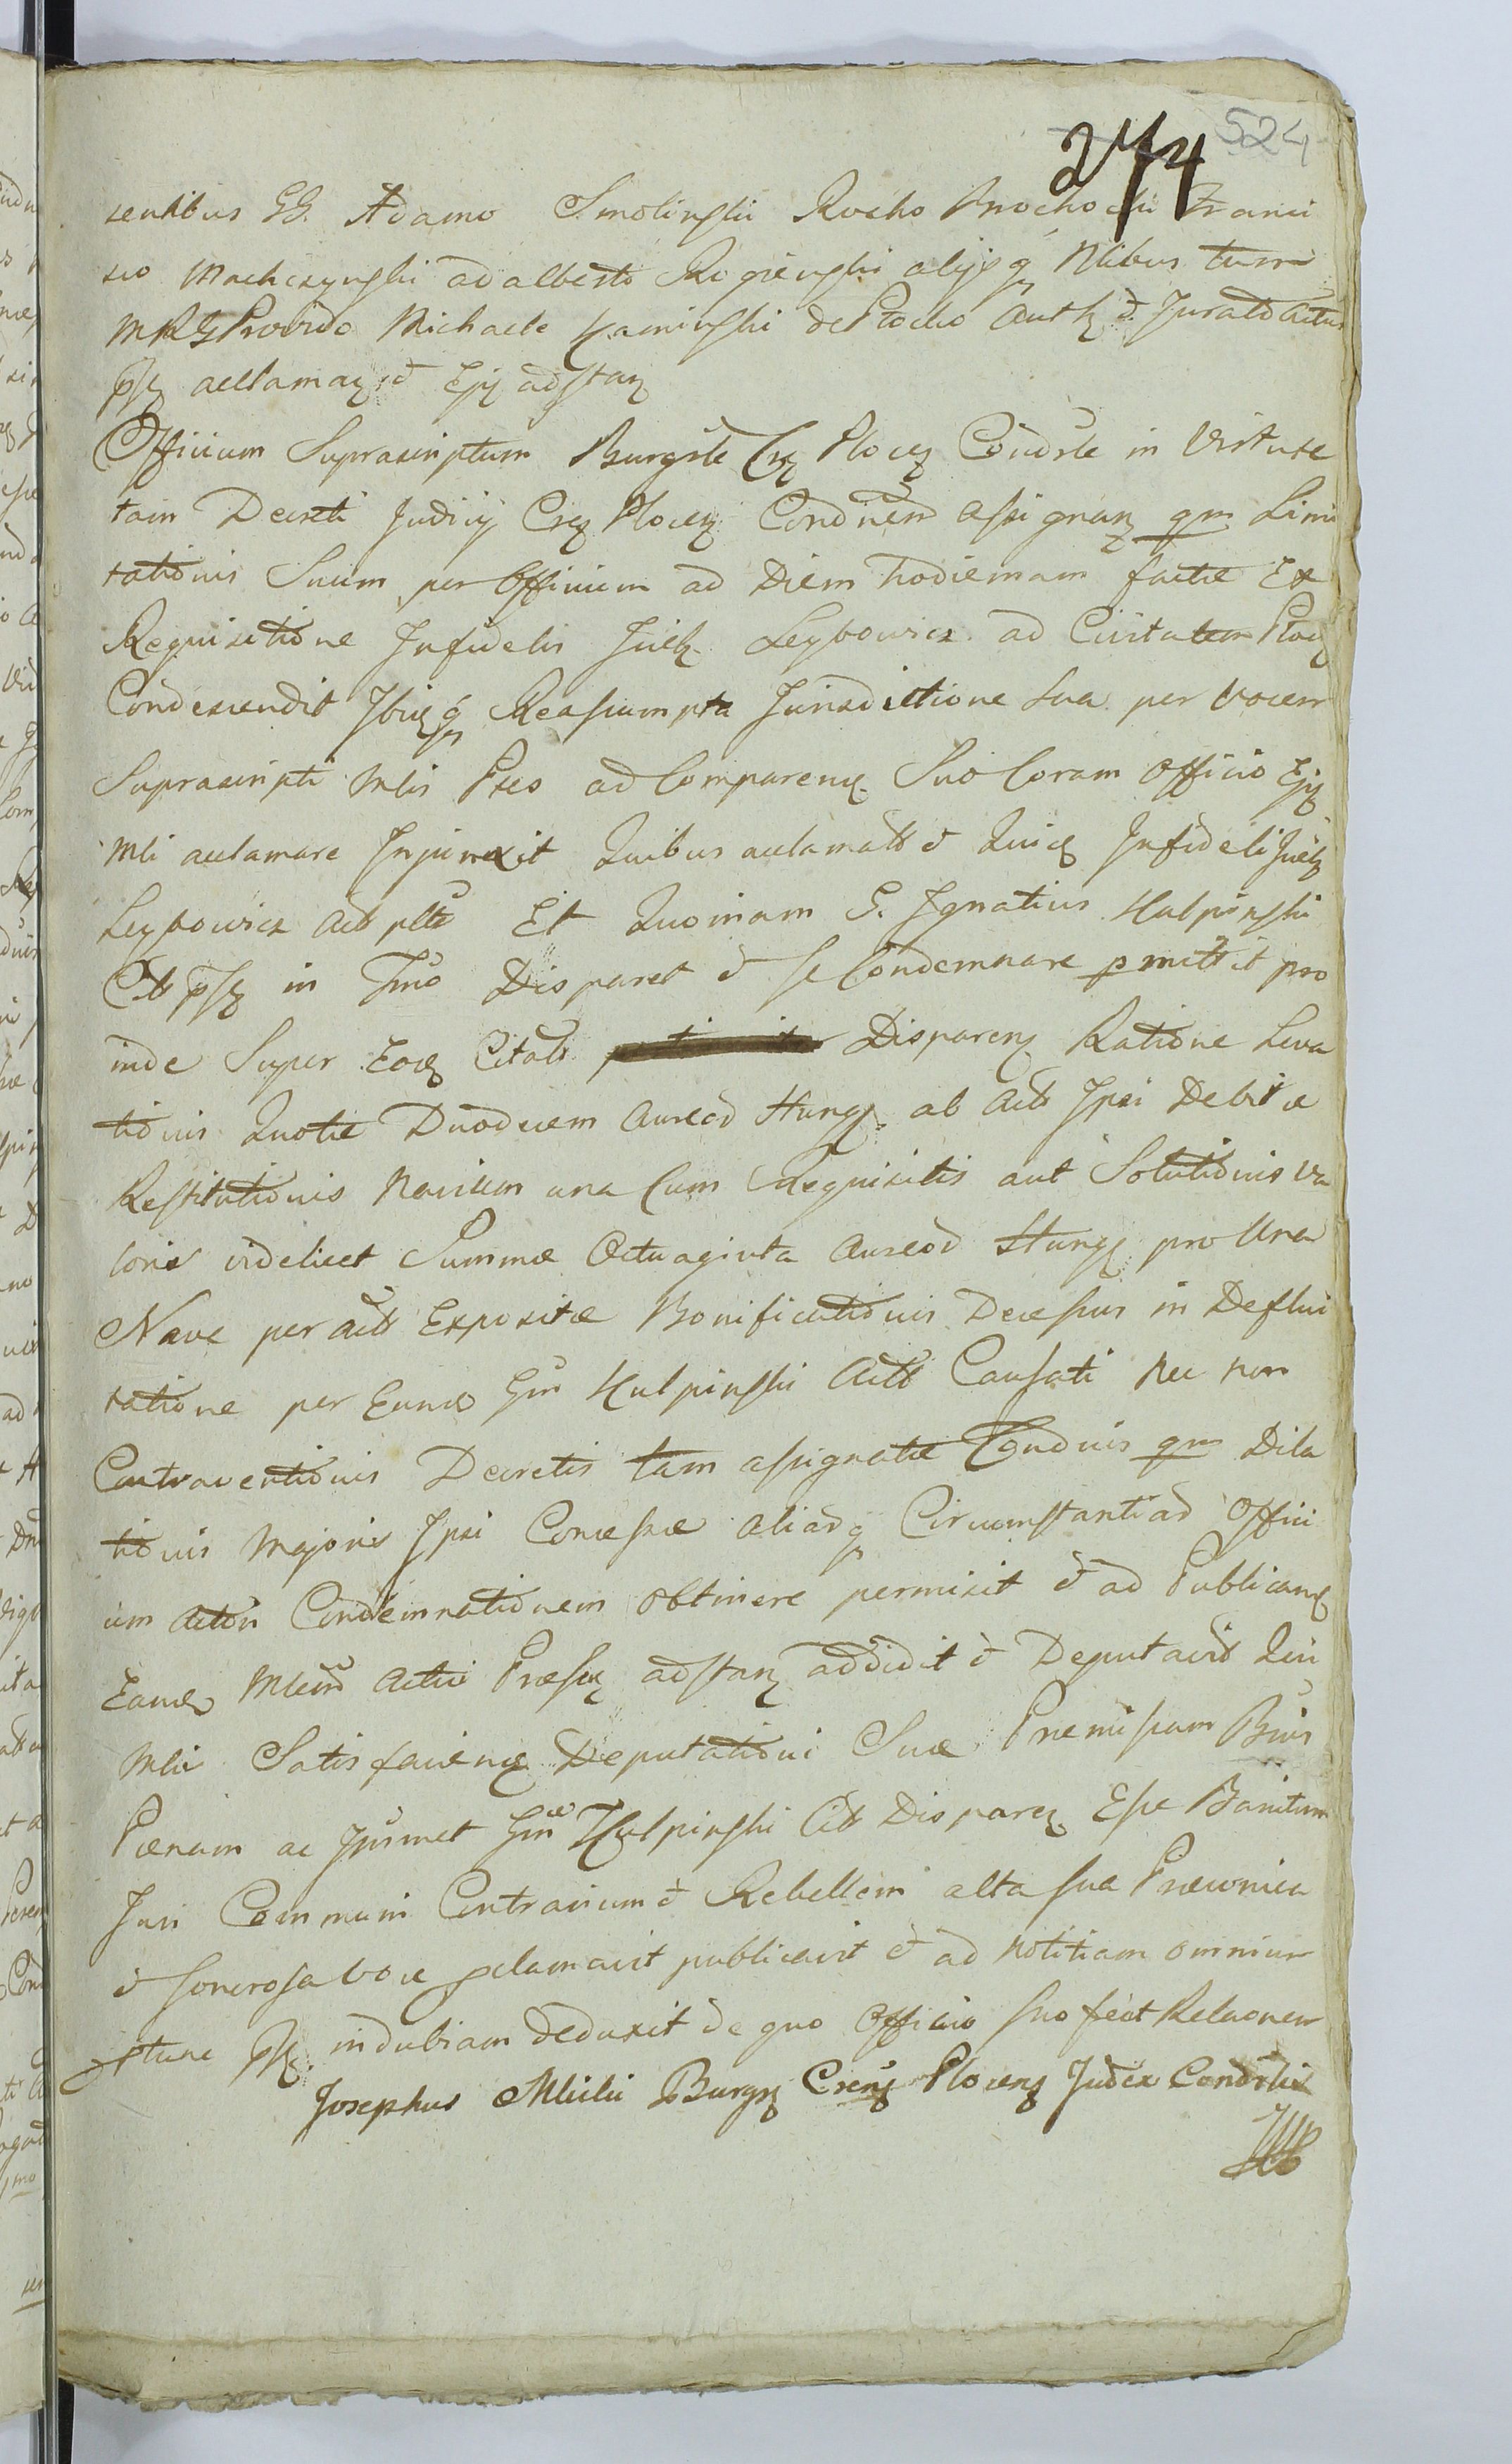 274 524
sentibus GG. Adamo Smolinski Rocho Brochocki Franci
sco Machczynski adalberto Rogienski alijsq Nlibus tum
MRG Provido Michaele Kaminski de Plocko Auth et Jurato Actus
psn acclaman et Ejq adstan
Officium Suprascriptum Burgrle Cre Plocen Condrle in Virtute
tam Decreti Judicij Cren Plocen Condnem assignan qm Limi
tationis Suum per Officium ad Diem hodiernam factæ Ex
Requisitione Infidelis Juelk Leybowicz ad Civitatem Plocn
Condescendit Ibidq Reassumpta Jurisdictione sua per vocem
Suprascripti Mlis Pseo ad Comparend Suo Coram Officio Ejq
Mli acclamare Injunxit Quibus acclamatt et Quidq Infideli Juelk
Leybowicz Act pltr Et Quoniam G. Ignatius Kulpinski
Citt psn in Tmo Disparet et se Condemnare pmittit pro
inde Super Eodq Citato Disparen Ratione Leva
tionis Quotæ Duodecem Aureor Hung ab Act Ipsi Debitæ
Restitutionis Navium una Cum Requisitis aut Solutionis va
loris videlicet Summæ Octuaginta Aureor Hung pro Una
Nave per Act Expositæ Bonificationis Decessus in Deflui
tatione per Eund Gm Kulpinski Actt Causati nec non
Contraventionis Decretis tam assignatæ Condnis qm Dila
tionis Majoris Ipsi Concessæ aliarq Circumstantiar Offici
um Acton Condemnationem obtinere permisit et ad Publicand
Eand Mlem Actui Præsen adstan addidit et Deputavit Qui
Mlis Satisfaciend Deputationi Suæ Præmissam Bnis
Pænam ac Ipsumet Gm Kulpinski Citt Disparen Esse Banitum
Juri Communi Contrarium et Rebellem alta sua Præconica
et sonorosa voce pclamavit publicavit et ad notitiam omnium
ptunc psn indubiam deduxit de quo Officio suo fecit Relaonem
Josephus Mlicki Burgr Crens Plocens Judex Condrlis